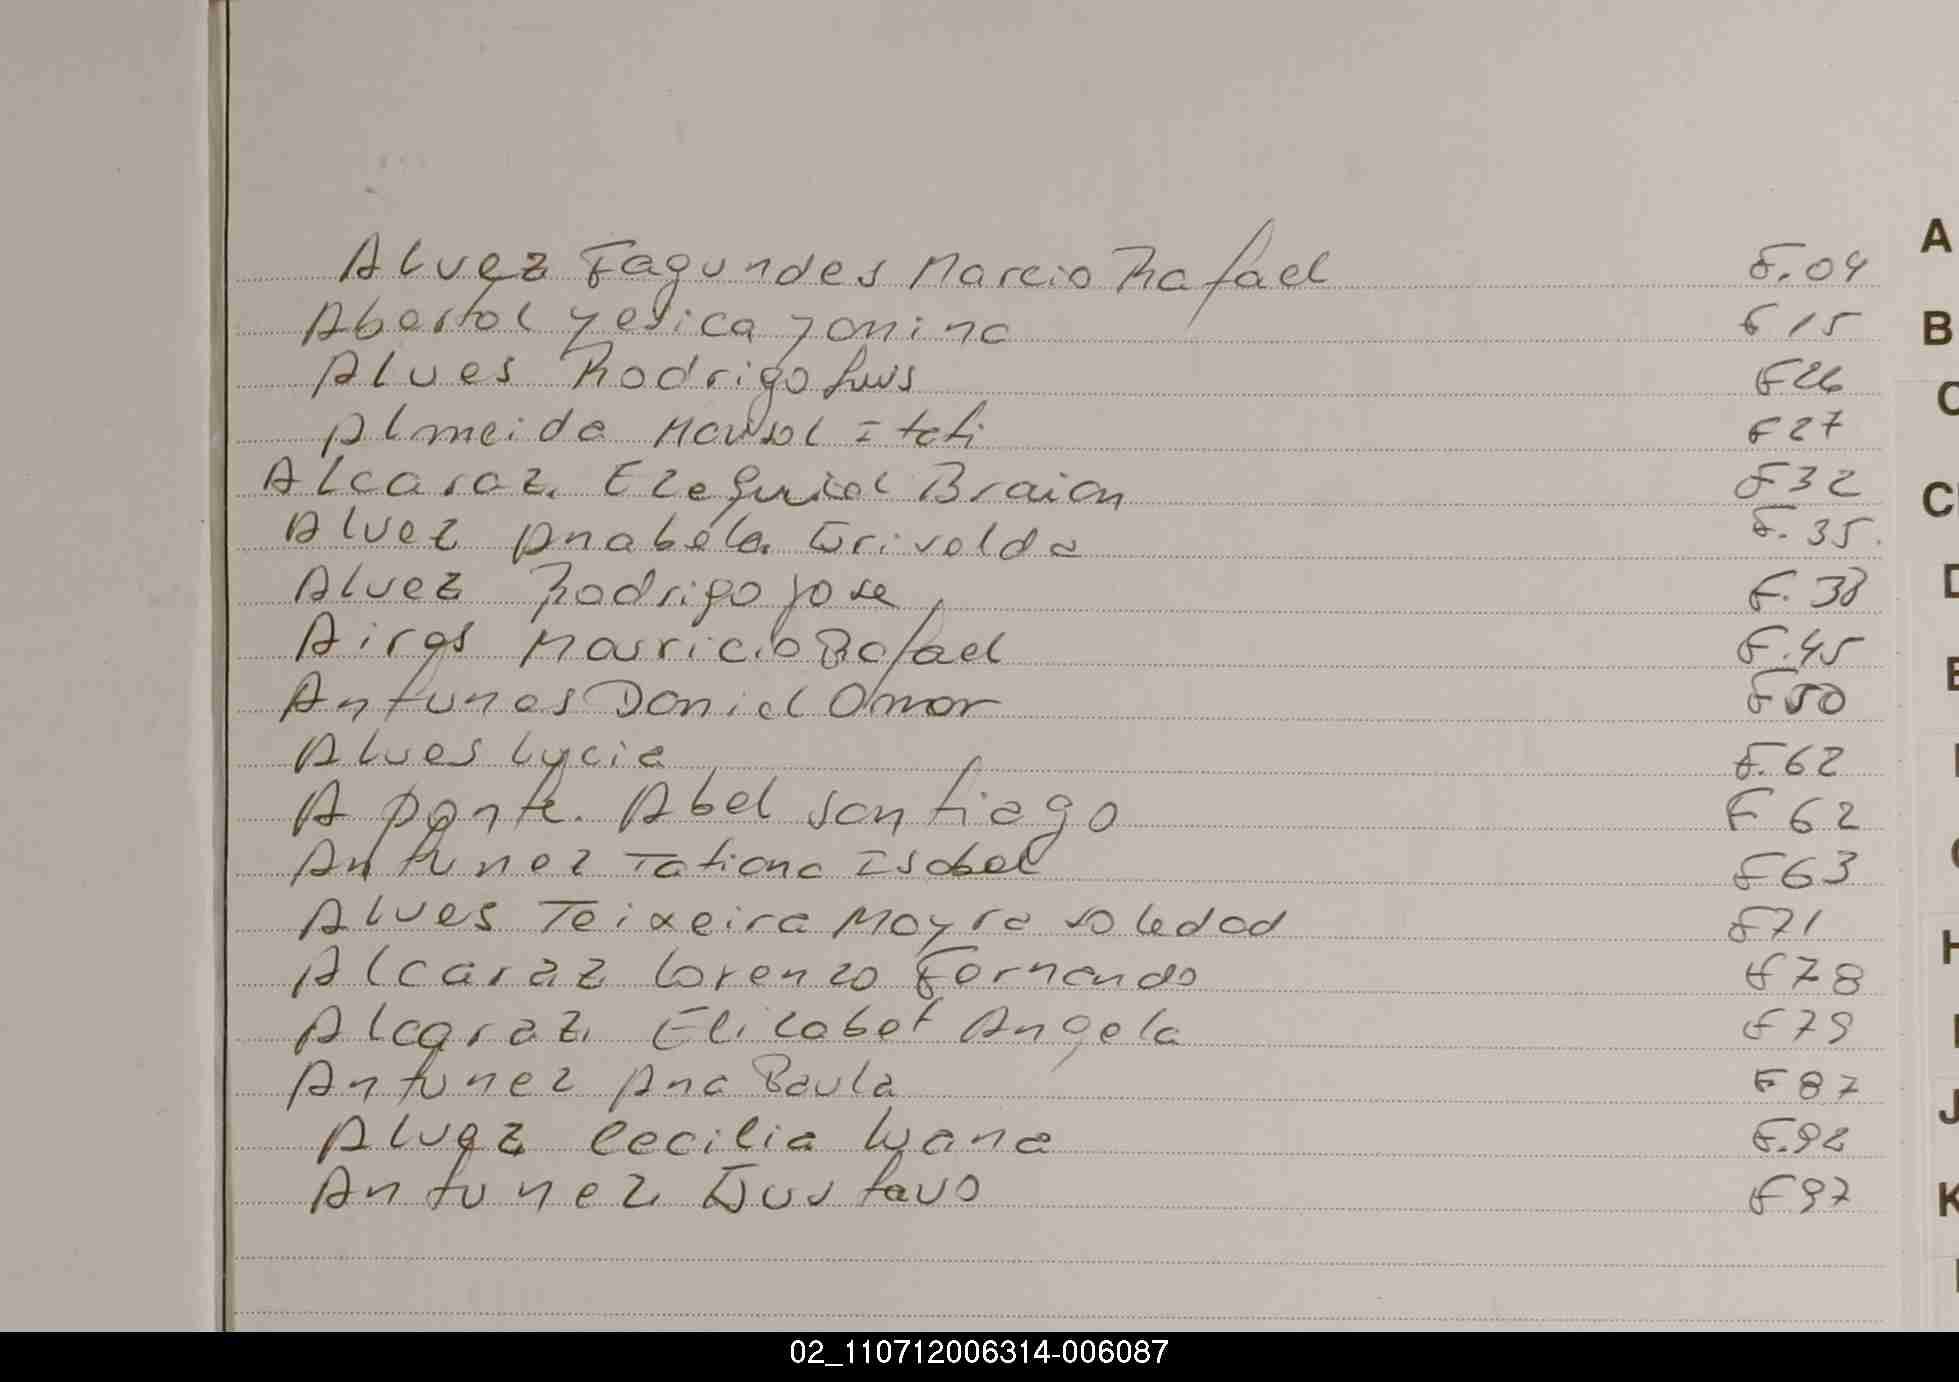 Alvez Fagundes Marcio Rafael F.04
Abertol Yesica Yanina F15
Alves Rodrigo Luis F26
Almeida Marisol Itati F27
Alcaraz Ezequiel Braian F32
Alvez Anabela Griselda F.35.
Alvez Rodrigo Jose F.38
Aires Mauricio Rafael F.45
Antunes Daniel Omar F50
Alves Lucia F.62
Aponte. Abel Santiago F 62
Antunez Tatiana Isabel F63
Alves Teixeira Mayra Soledad F71
Alcaraz Lorenzo Fernando F78
Alcaraz Elizabet Angela F79
Antunez Ana Paula F87
Alvez Cecilia Luana F.92
Antunez Gustavo F97
A
B
C
D
E
H
J
K
02_110712006314-006087